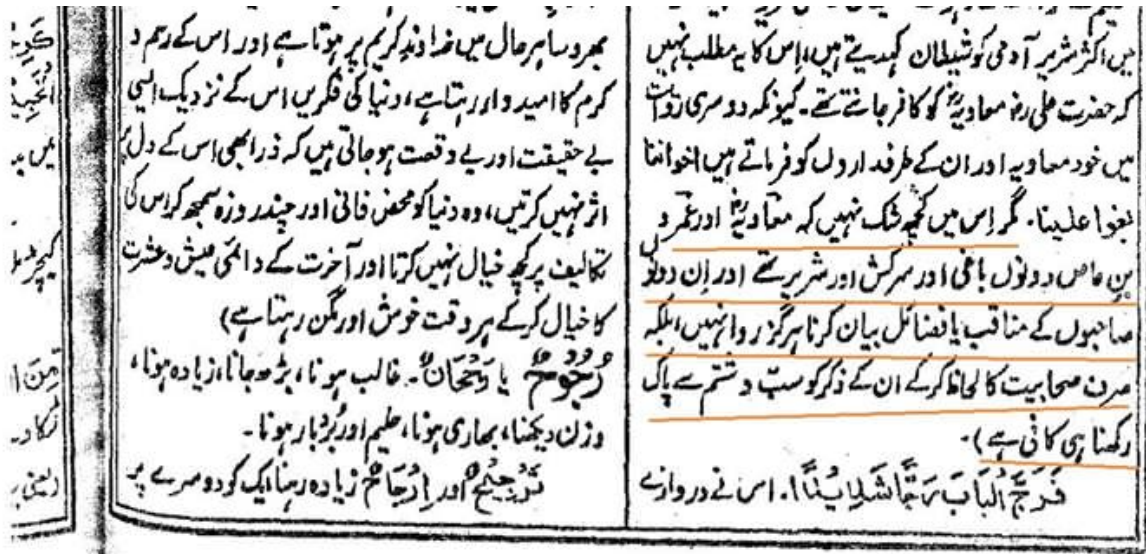 میں اکثر شریر آدمی کو شیطان کہدیتے ہیں، اِس کا یہ مطلب نہیں
کہ حضرت علی رضؓ معاویہؓ کو کافر جانتے تھے۔ کیونکہ دوسری روایت
میں خود معاویہ اور ان کے طرفداروں کو فرماتے ہیں اخواننا
بغوا علینا۔ مگر اِس میں کچھ شک نہیں کہ معاویہؓ اور عمرو
بن عاص دونوں باغی اور سرکش اور شریر تھے اور اِن دونوں
صاحبوں کے مناقب یا فضائل بیان کرنا ہرگز روا نہیں، بلکہ
صرف صحابیت کا لحاظ کر کے ان کے ذکر کو سبّ و شتم سے پاک
رکھنا ہی کافی ہے)۔
فَرَجَّ الْبَابَ رَجًّا شَدِیْدًا۔ اس نے دروازے
بھروسا ہر حال میں خداوند کریم پر ہوتا ہے اور اس کے رحم و
کرم کا امیدوار رہتا ہے، دنیا کی فکریں اس کے نزدیک ایسی
بے حقیقت اور بے وقعت ہوجاتی ہیں کہ ذرا بھی اس کے دل پر
اثر نہیں کرتیں، وہ دنیا کو محض فانی اور چند روزہ سمجھ کر اس کی
تکالیف پر کچھ خیال نہیں کرتا اور آخرت کے دائمی عیش و عشرت
کا خیال کر کے ہر وقت خوش اور مگن رہتا ہے)
رُجُوْحٌ یا رَجْحَانٌ۔ غالب ہونا، بڑھ جانا، زیادہ ہونا،
وزن دیکھنا، بھاری ہونا، حلیم اور بُردبار ہونا۔
تَرْجِیْحٌ اور اِرْجَاحٌ زیادہ رہنا ایک کو دوسرے پر